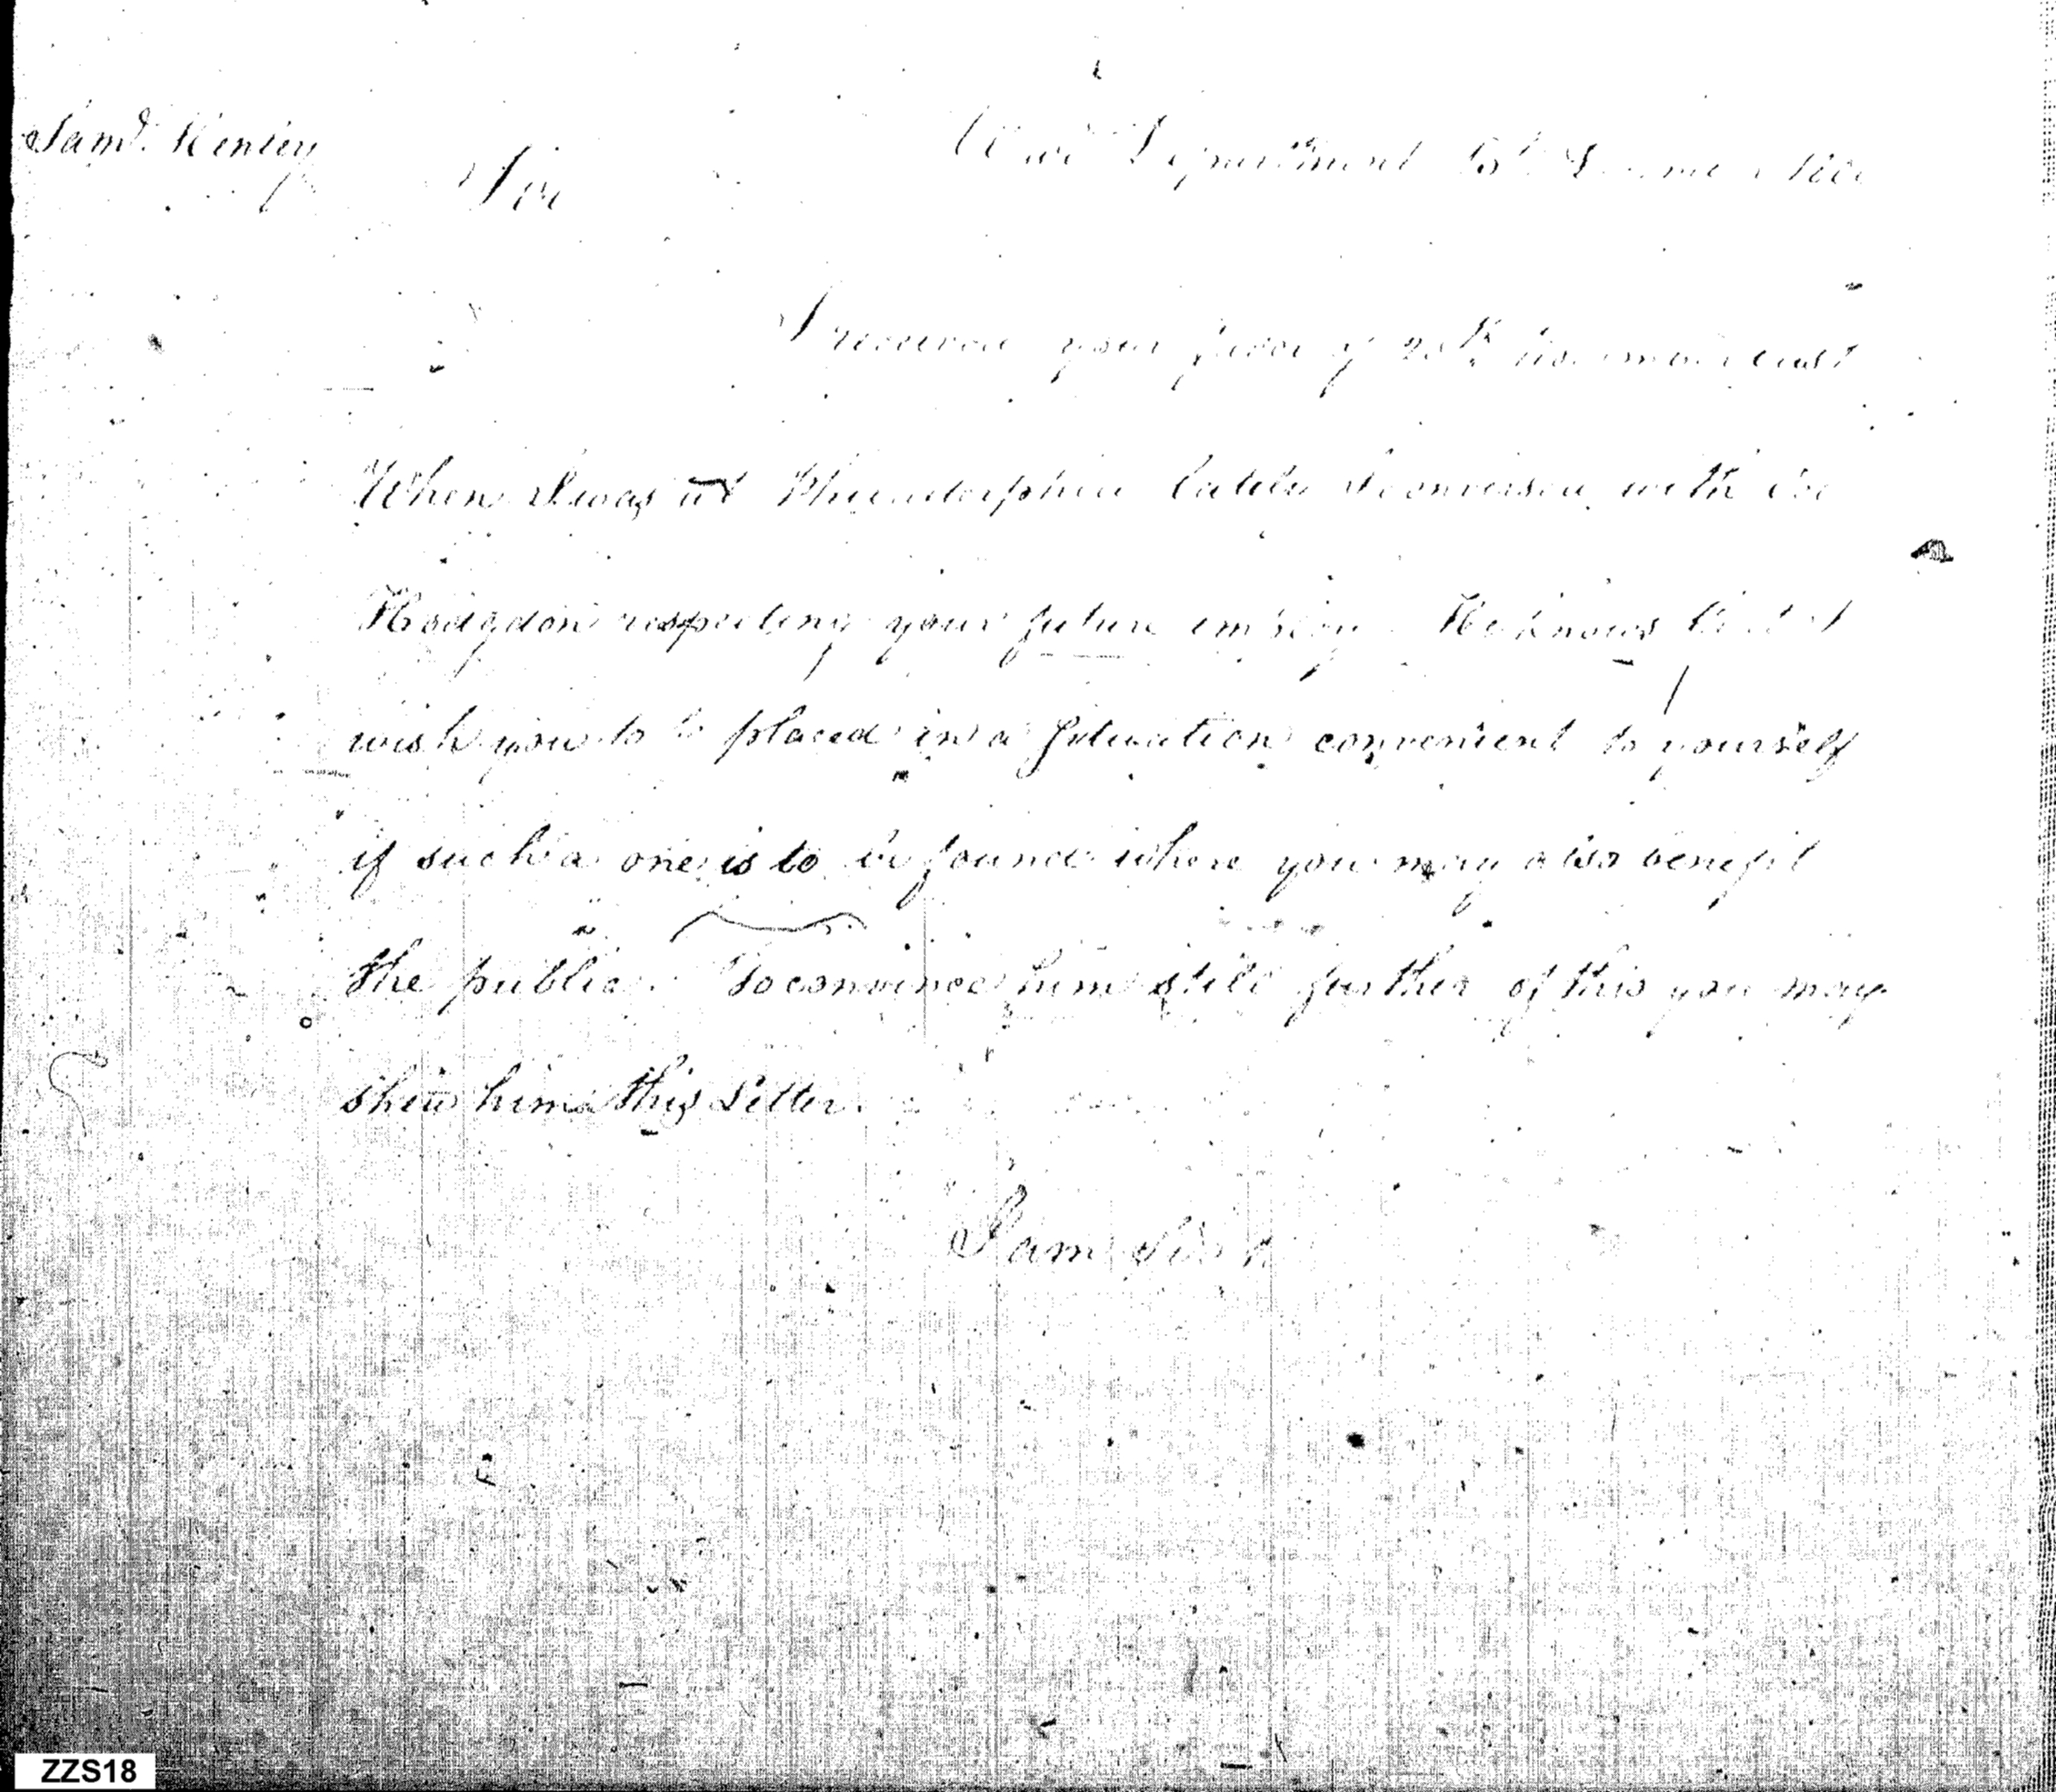 Saml. Henley
Sir
War Department 1st December 180
I received your favor of 20th November last
When I was at Philadelphia lately I conversed with Col
Hodgdon respecting your future employ. He knows that I
wish you to be placed in a situation convenient to yourself
if such a one is to be found where you may also benefit
the public. To convince him still further of this you may
shew him this Letter.
I am Sir &
ZZS18